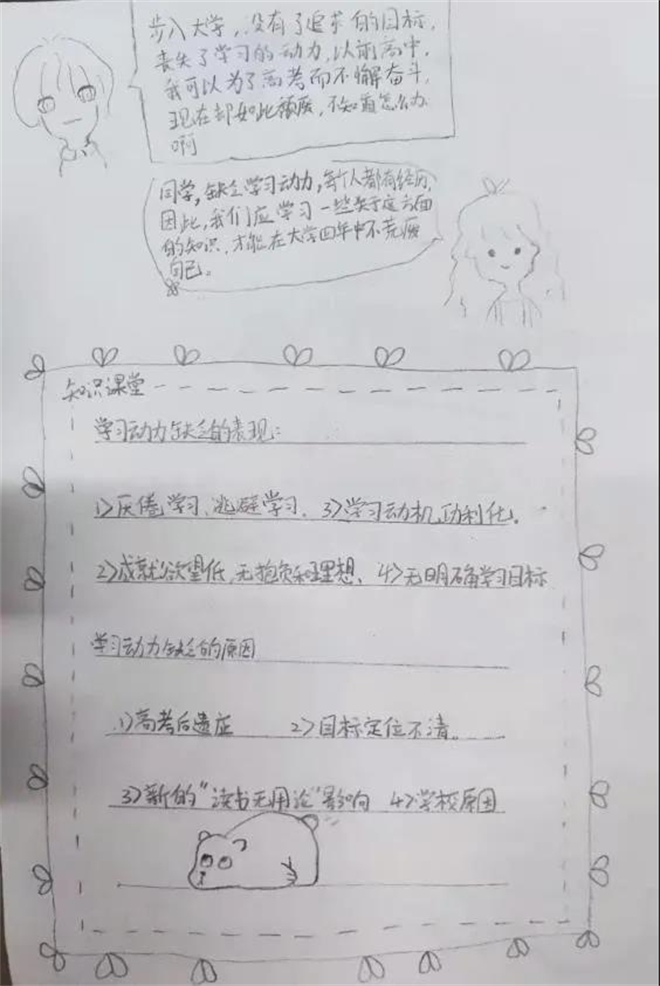 步入大学，没有了追求的目标，
丧失了学习的动力，以前高中，
我可以为了高考而不懈奋斗，
现在却如此颓废，不知道怎么办
啊
同学，缺乏学习动力，每个人都有经历，
因此，我们应学习一些关于这方面
的知识，才能在大学四年中不荒废
自己。
知识课堂
学习动力缺乏的表现：
1>厌倦学习、逃避学习、 3>学习动机功利化。
2>成就欲望低，无抱负和理想、 4>无明确学习目标
学习动力缺乏的原因
1>高考后遗症 2>目标定位不清。
3>新的“读书无用论”影响 4>学校原因